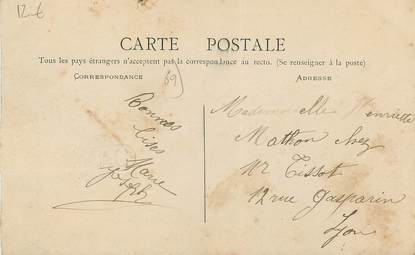 12-€
CARTE POSTALE
Tous les pays étrangers n'acceptent pas la correspondance au recto. (Se renseigner à la poste)
CORRESPONDANCE
69
ADRESSE
Bonnes
bises
Marie
Joseph
Mademoiselle Henriette
Mathon chez
Mr Tissot
12 rue Gasparin
Lyon